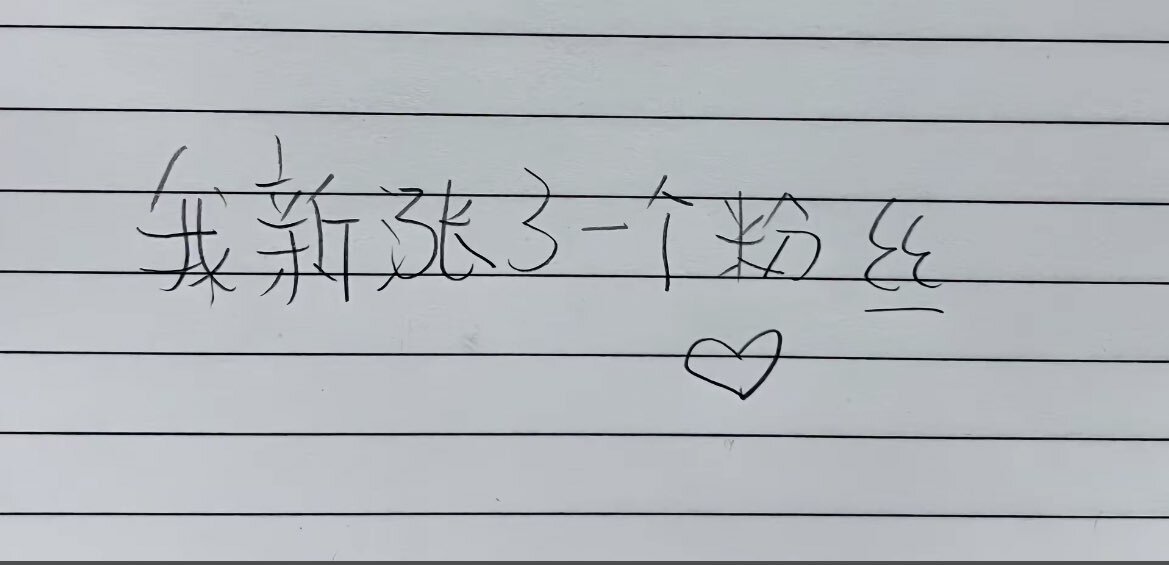 我新涨了一个粉丝